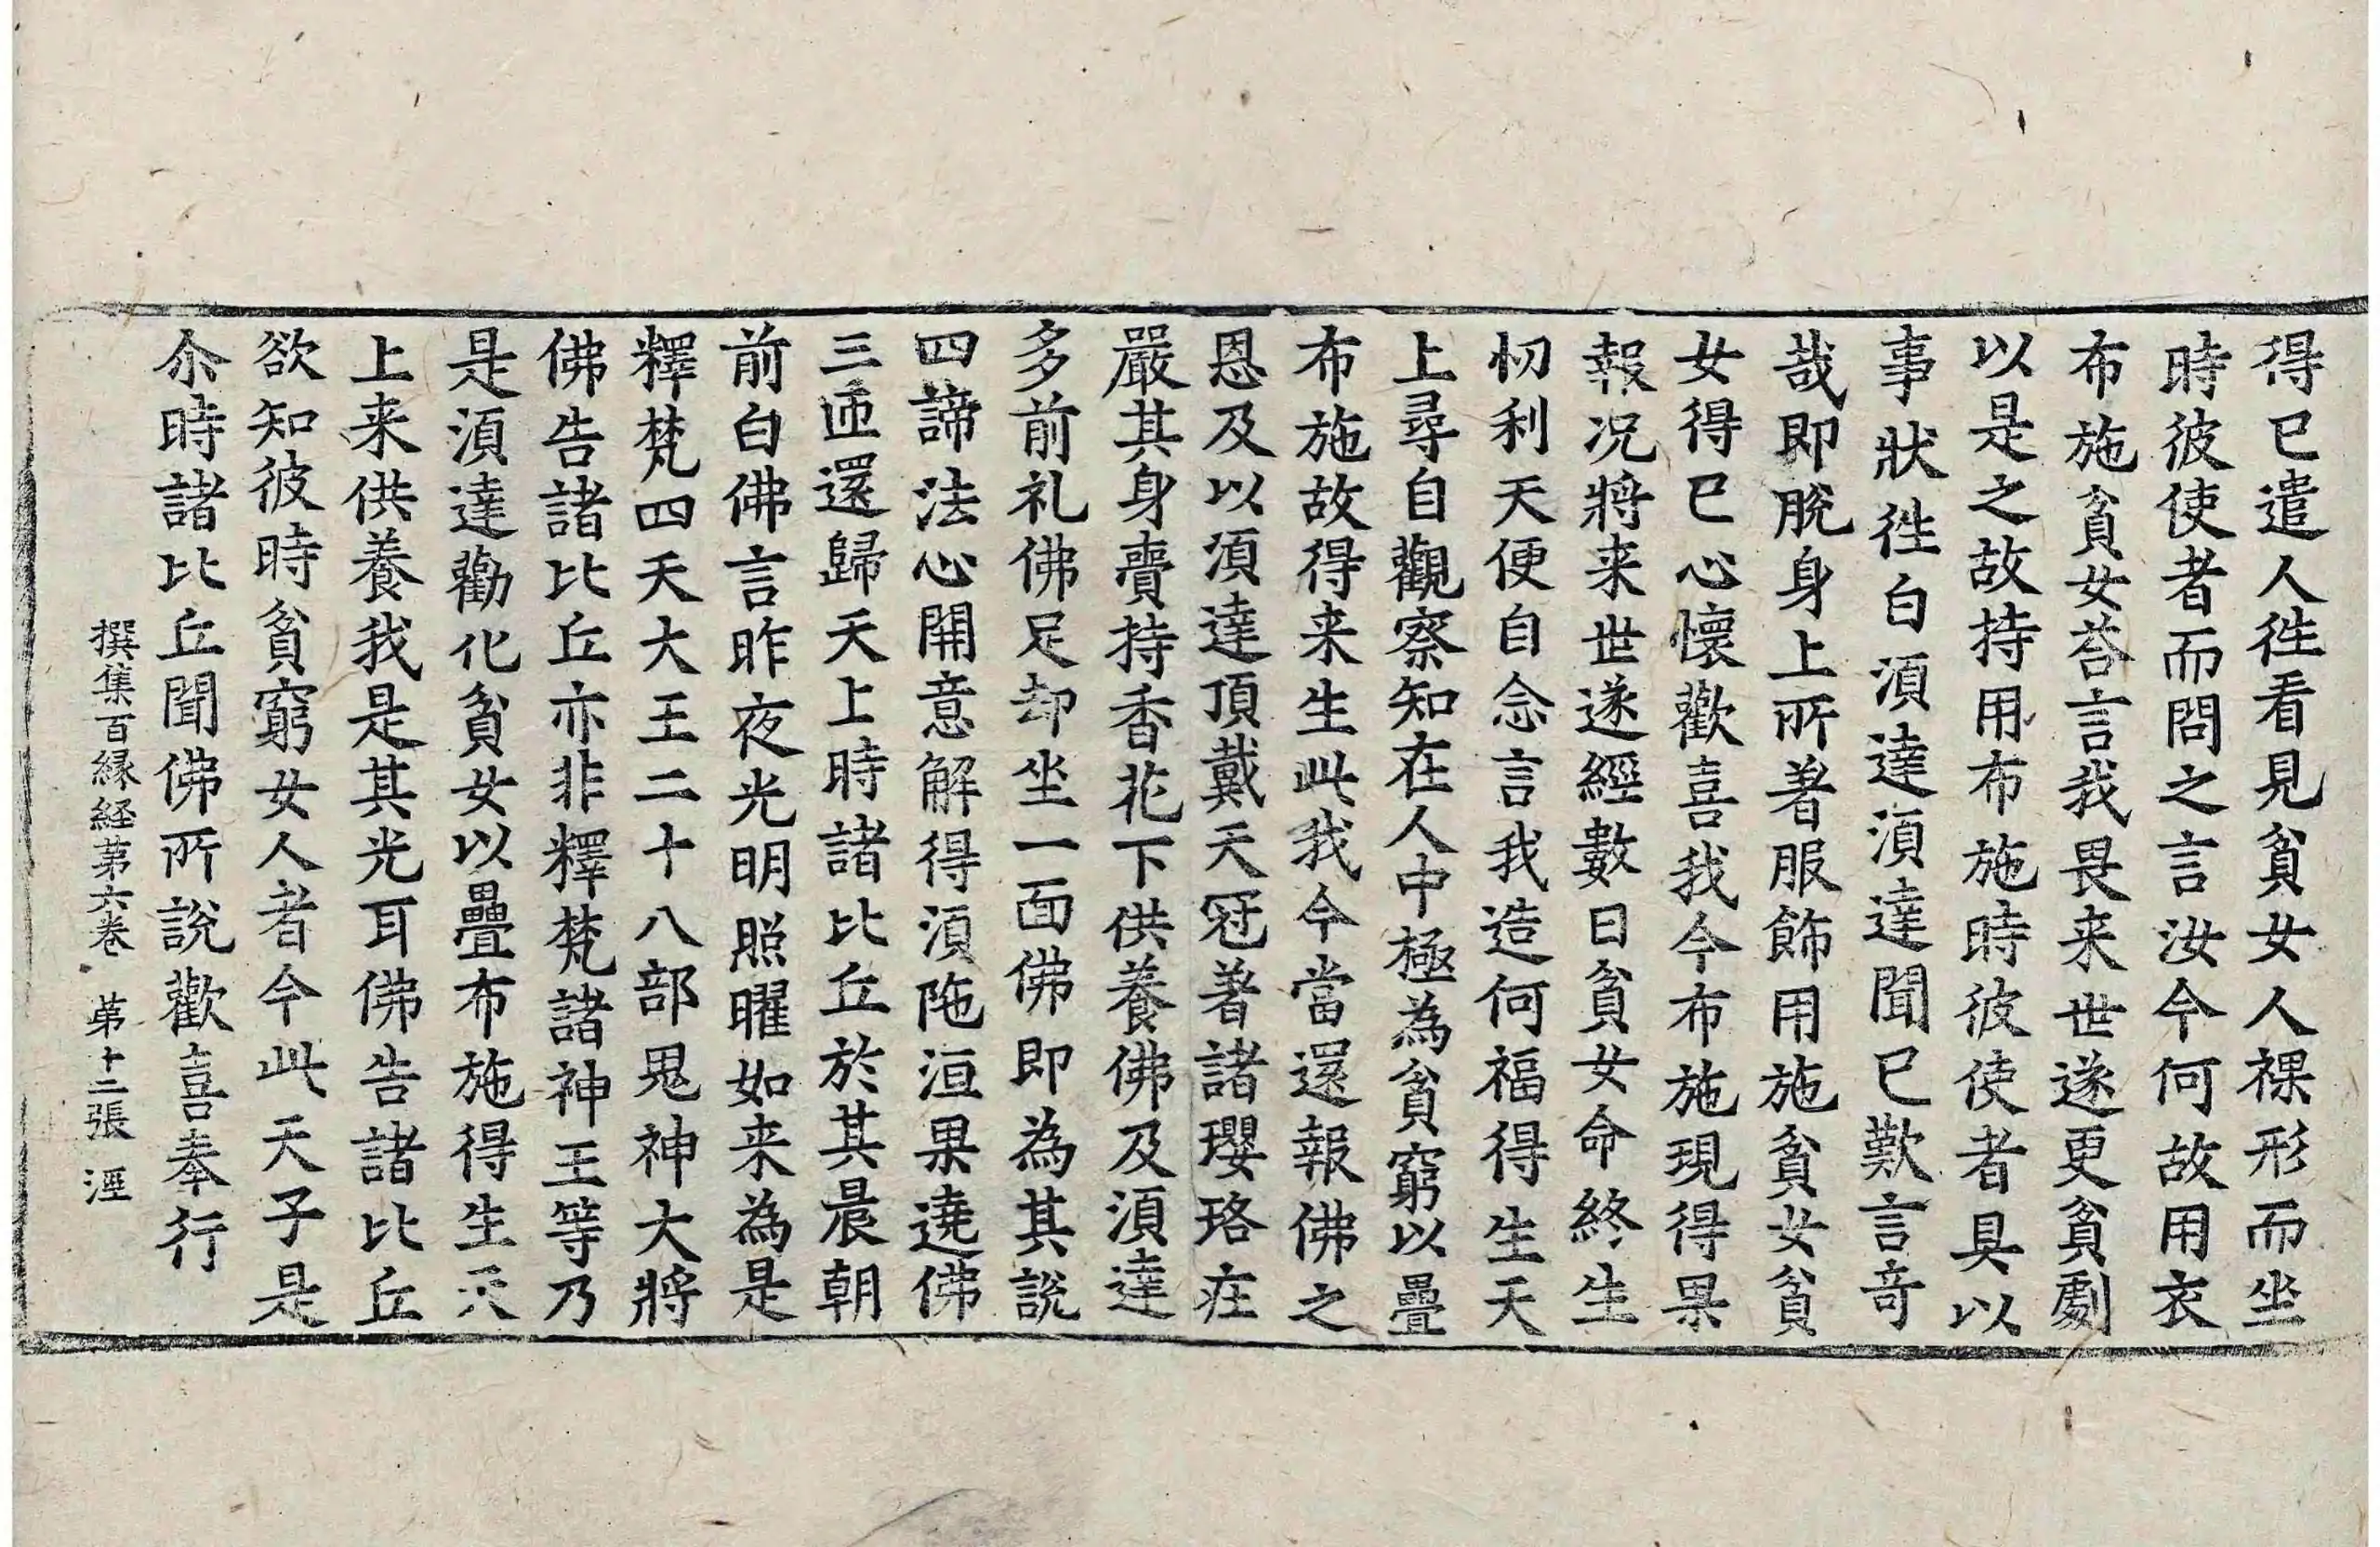 得已遣人徃看見貧女人裸形而坐
時彼使者而問之言汝今何故用衣
布施貧女荅言我畏来世遂更貧劇
以是之故持用布施時彼使者具以
事狀徃白湏達湏達聞已歎言奇
哉即脫身上所著服飾用施貧女貧
女得已心懷歡喜我今布施現得果
報况將来世遂經數日貧女命終生
忉利天便自念言我造何福得生天
上尋自觀察知在人中極為貧窮以疊
布施故得来生此我今當還報佛之
恩及以湏達頂戴天冠著諸瓔珞庄
嚴其身賷持香花下供養佛及湏達
多前礼佛足却坐一面佛即為其說
四諦法心開意解得湏陁洹果遶佛
三匝還歸天上時諸比丘於其晨朝
前白佛言昨夜光明照曜如来為是
釋梵四天大王二十八部鬼神大將
佛告諸比丘亦非釋梵諸神王等乃
是湏達勸化貧女以疊布施得生天
上来供養我是其光耳佛告諸比丘
欲知彼時貧窮女人者今此天子是
尒時諸比丘聞佛所說歡喜奉行
撰集百縁経第六卷 第十二張 涇